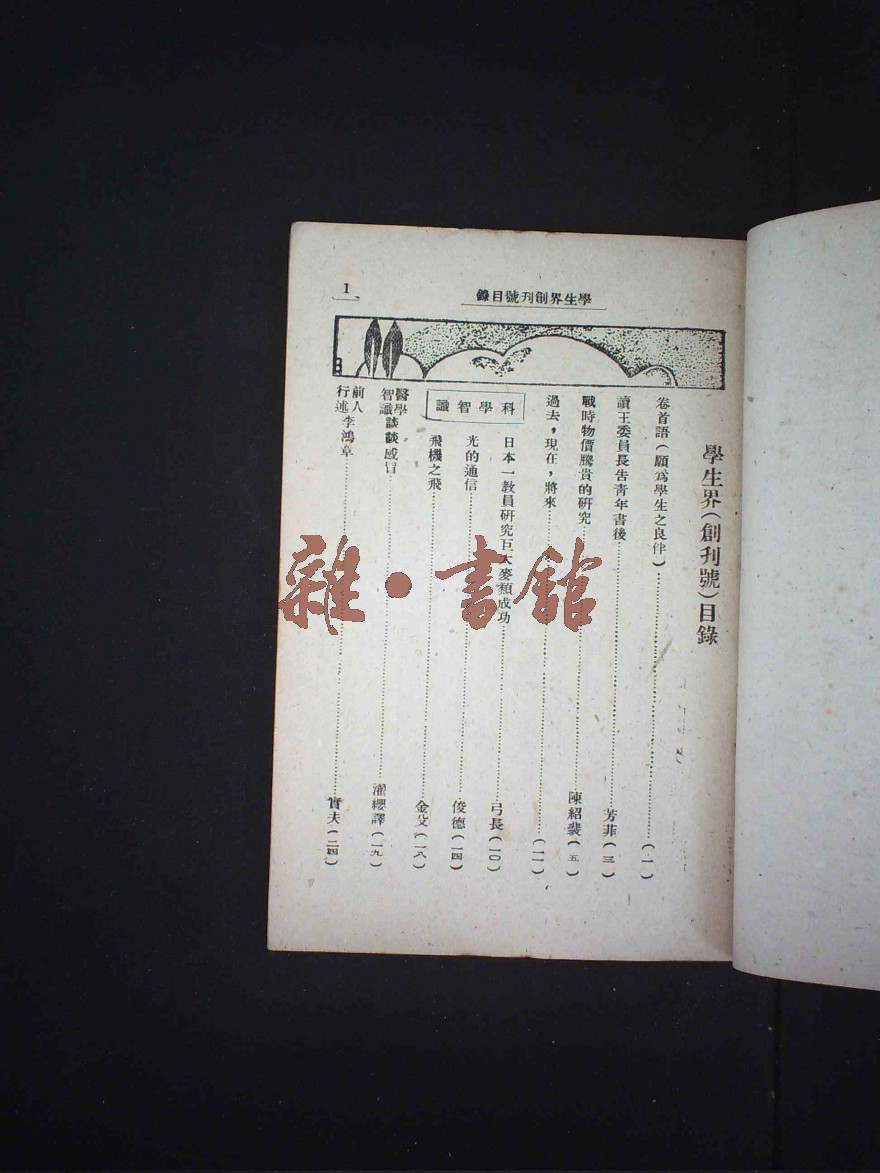 學生界創刊號目錄
1
學生界(創刊號)目錄
卷首語(願為學生之良伴)……(一)
讀王委員長告青年書後……芳菲(三)
戰時物價騰貴的研究……陳紹裴(五)
過去,現在,將來……(一一)
科學智識
日本一教員研究巨大麥類成功……弓長(一〇)
光的通信……俊德(一四)
飛機之飛……金殳(一八)
醫學智識談談感冒……濯纓譯(一九)
前人行述李鴻章……實夫(二四)
雜·書館